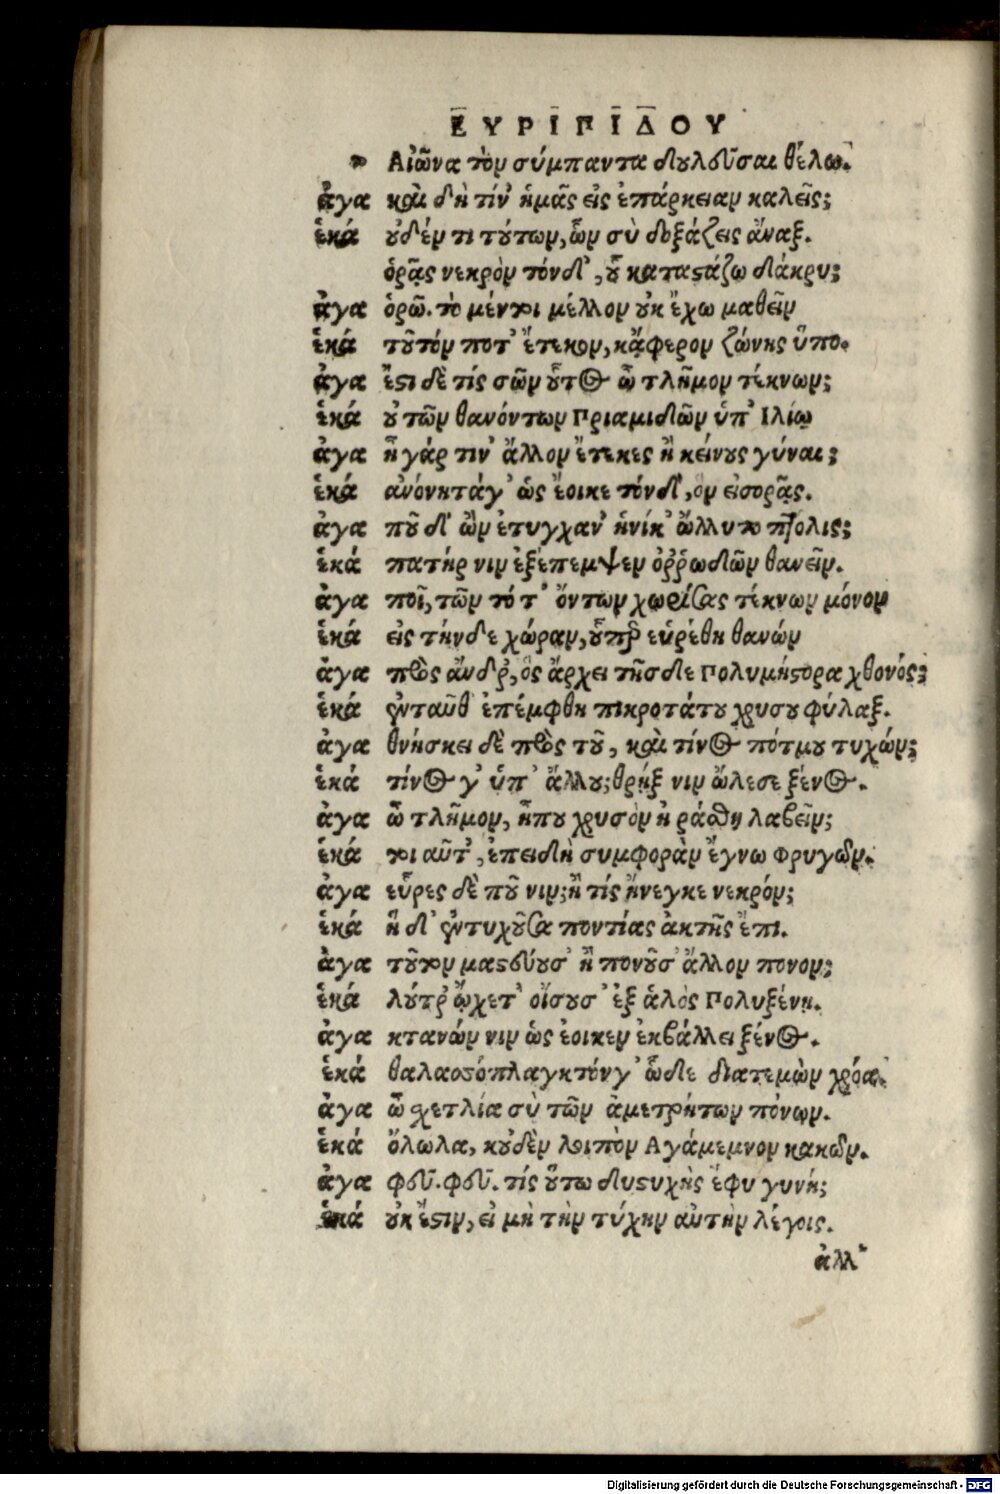 ΕΥΡΙΠΙΔΟΥ
Αἰῶνα τὸν σύμπαντα δουλεῦσαι θέλω.
ἀγα καὶ δὴ τίν' ἡμᾶς εἰς ἐπάρκειαν καλεῖς;
ἑκά οὐδέν τι τούτων, ὧν σὺ δοξάζεις ἄναξ.
ὁρᾷς νεκρὸν τόνδ', οὗ καταστάζω δάκρυ;
ἀγα ὁρῶ. τὸ μέντοι μέλλον οὐκ ἔχω μαθεῖν
ἑκά τοῦτόν ποτ' ἔτεκον, κἄφερον ζώνης ὕπο.
ἀγα ἔστι δὲ τίς σῶν οὗτος ὦ τλῆμον τέκνων;
ἑκά οὐ τῶν θανόντων Πριαμιδῶν ὑπ' Ιλίῳ
ἀγα ἦ γάρ τιν' ἄλλον ἔτεκες ἢ κείνους γύναι;
ἑκά ἀνόνητάγ' ὡς ἔοικε τόνδ', ὃν εἰσορᾷς.
ἀγα ποῦ δ' ὢν ἐτυγχαν' ἡνίκ' ὤλλυτο πτολις;
ἑκά πατήρ νιν ἐξέπεμψεν ὀῤῥωδῶν θανεῖν.
ἀγα ποῖ, τῶν τότ' ὄντων χωρίσας τέκνων μόνον
ἑκά εἰς τήνδε χώραν, οὗπερ εὑρέθη θανών
ἀγα πρὸς ἄνδρ', ὃς ἄρχει τῆσδε Πολυμήστορα χθονός;
ἑκά ἐνταῦθ' ἐπέμφθη πικροτάτου χρυσοῦ φύλαξ.
ἀγα θνήσκει δὲ πρὸς τοῦ, καὶ τίνος πότμου τυχών;
ἑκά τίνος γ' ὑπ' ἄλλου; θρῄξ νιν ὤλεσε ξένος.
ἀγα ὦ τλῆμον, ἦπου χρυσὸν ἠράσθη λαβεῖν;
ἑκά τοιαῦτ', ἐπειδὴ συμφορὰν ἔγνω Φρυγῶν.
ἀγα εὗρες δὲ ποῦ νιν; ἢ τίς ἤνεγκε νεκρόν;
ἑκά ἥ δ' ἐντυχοῦσα ποντίας ἀκτῆς ἔπι.
ἀγα τοῦτον μαστεύουσ' ἢ πονοῦσ' ἄλλον πονον;
ἑκά λούτρ' ᾤχετ' οἴσουσ' ἐξ ἁλὸς Πολυξένη.
ἀγα κτανών νιν ὡς ἐοικεν ἐκβάλλει ξένος.
ἑκά θαλασσόπλαγκτόνγ' ὧδε διατεμὼν χρόα.
ἀγα ὦ σχετλία σὺ τῶν ἀμετρήτων πόνων.
ἑκά ὄλωλα, κοὐδὲν λοιπὸν Αγάμεμνον κακῶν.
ἀγα φεῦ. φεῦ. τίς οὕτω δυστυχὴς ἔφυ γυνή;
ἑκά οὐκ ἔστιν, εἰ μὴ τὴν τύχην αὐτὴν λέγοις.
ἀλλ'
Digitalisierung gefördert durch die Deutsche Forschungsgemeinschaft - DFG